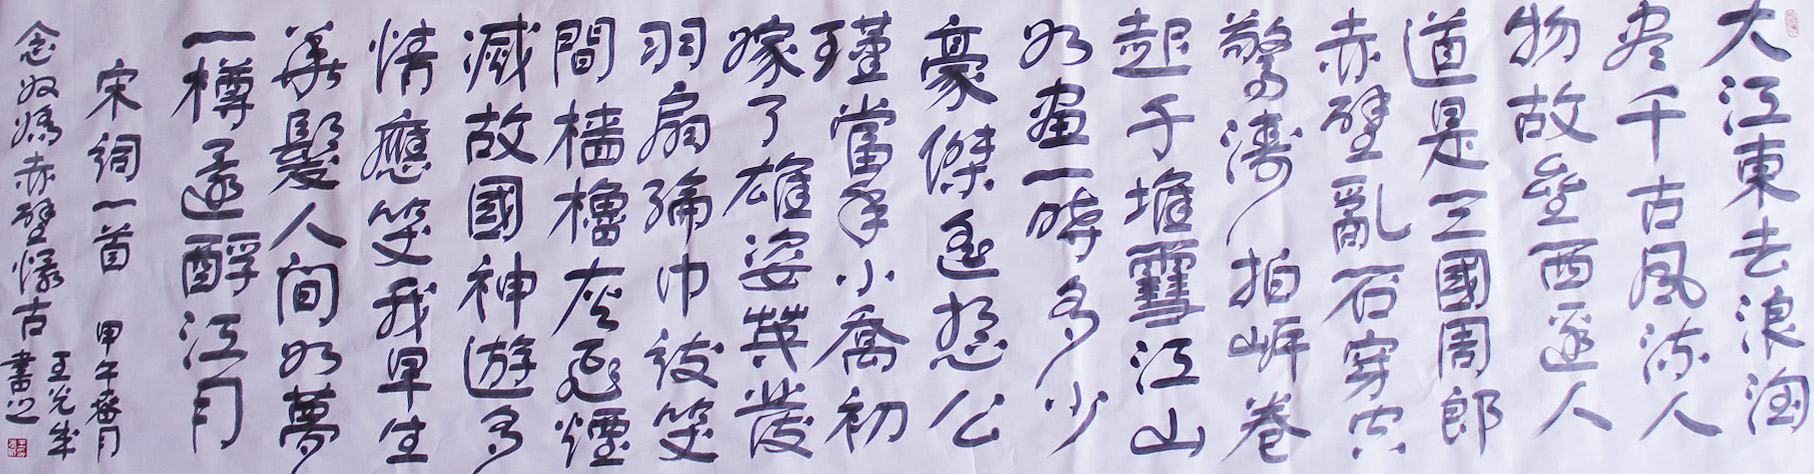 大江東去浪淘
尽千古风流人
物故壘西邊人
道是三國周郎
赤壁亂石穿空
驚濤拍岸卷
起千堆雪江山
如畫一時多少
豪傑遙想公
瑾當年小喬初
嫁了雄姿英發
羽扇綸巾談笑
間檣櫓灰飛煙
滅故國神遊多
情應笑我早生
華髮人間如夢
一樽還酹江月
宋詞一首 甲午春月
念奴嬌赤壁懷古
王光
書之